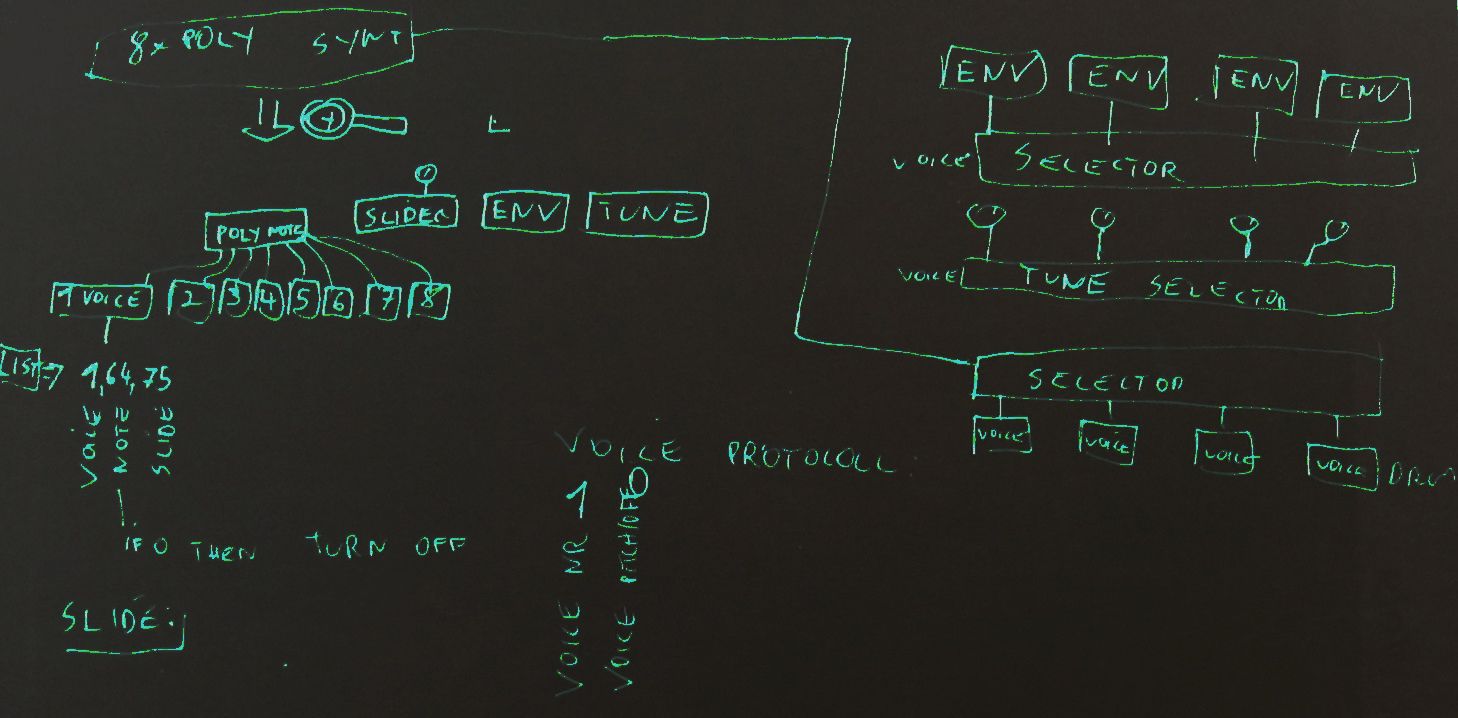 8x POLY SYNT
ENV ENV ENV ENV
VOICE SELECTOR
SLIDER ENV TUNE
POLY NOTE
VOICE TUNE SELECTOR
1 VOICE 2 3 4 5 6 7 8
SELECTOR
LIST 1,64,75
VOICE NOTE SLIDE
VOICE VOICE VOICE VOICE DRUM
VOICE PROTOCOLL
1 0
VOICE NR
VOICE PITCH/OFF
IF 0 THEN TURN OFF
SLIDE: